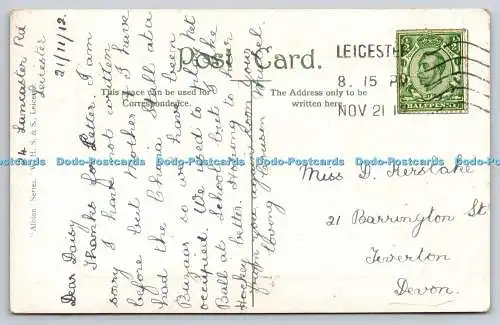 Post Card.
This space can be used for
Correspondence.
The Address only to be
written here.
"Albion" Series. W. H. S. & S. Leicester
LEICESTER
8. 15 PM
NOV 21 1
HALFPENNY
Lancaster Rd
Leicester
21/11/12
Dear Daisy
Thanks for Letter. I am
sorry I have not written
before but Mother & I have
had the China Stall at a
Bazaar so we have been
occupied. We used to play Net
Ball at School but I like
Hockey better. Hoping to hear
from you again soon your
loving
Miss D. Kerslake
21 Barrington St
Tiverton
Devon.
Dodo-Postcards Dodo-Postcards Dodo-Postcards Dodo-Postcards Dodo-Postcards Dodo-Postcards